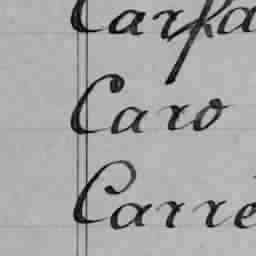 Carfa
Caro
Carré